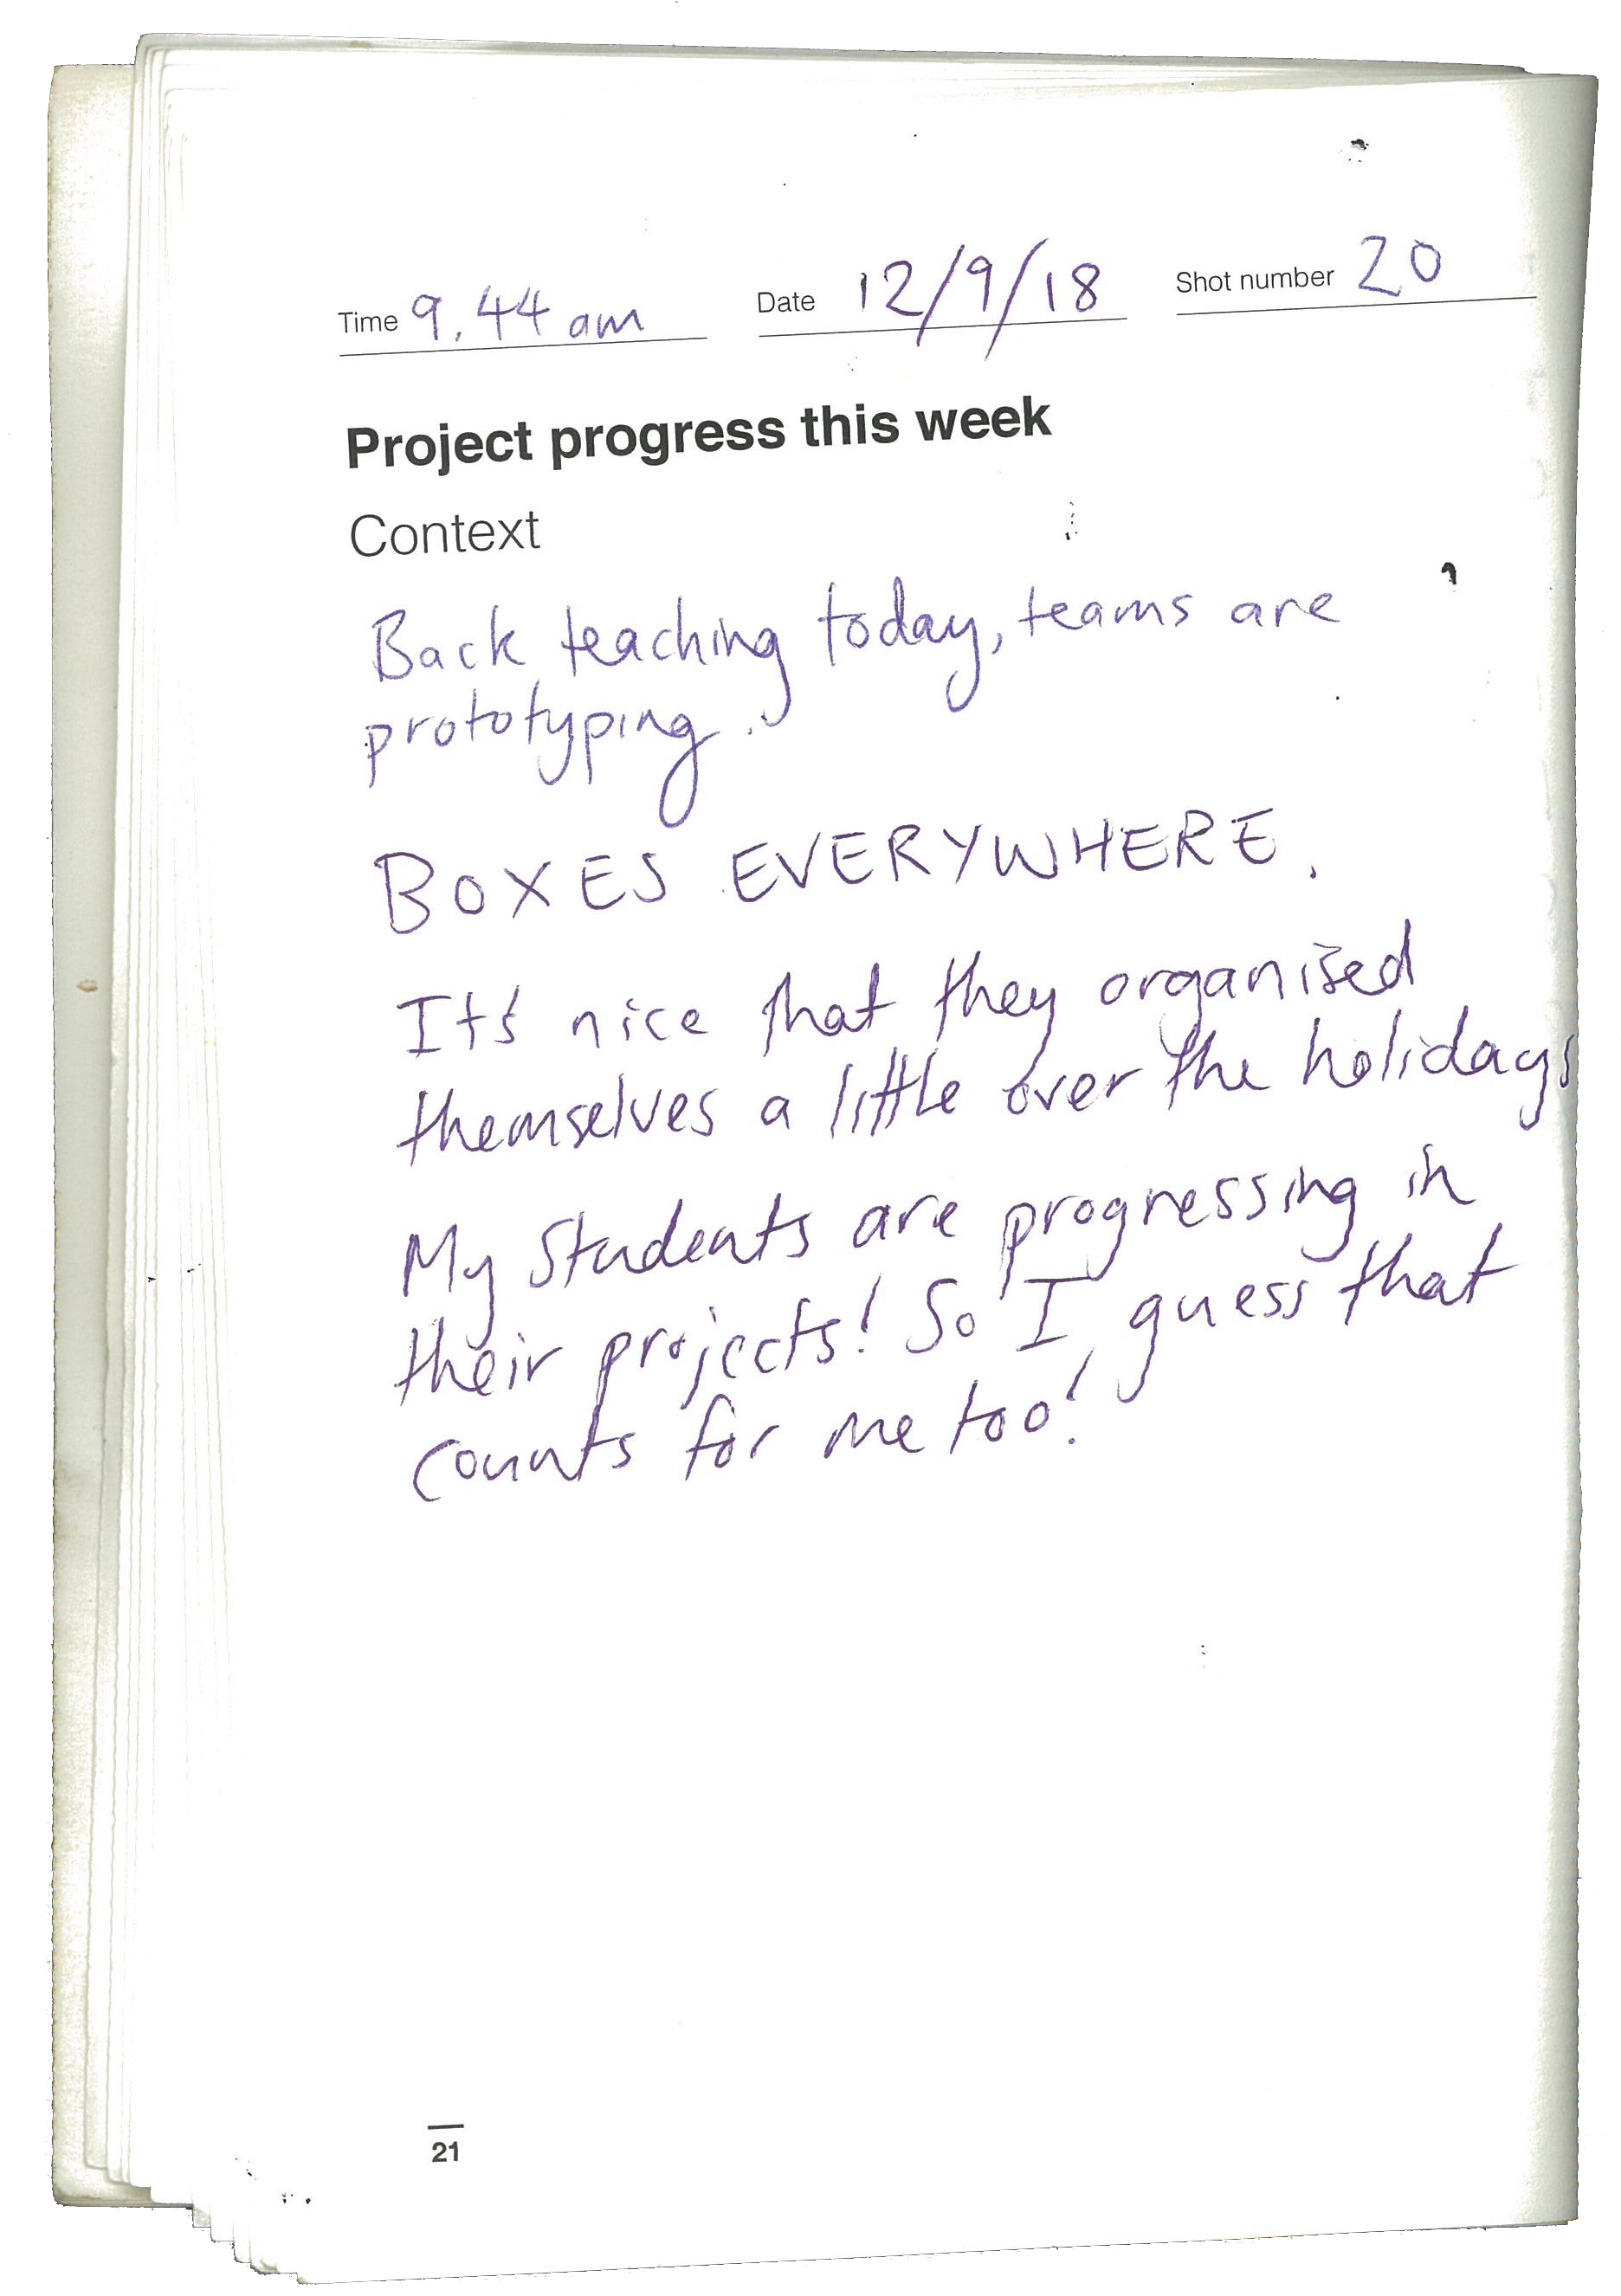 Time 9.44 am Date 12/9/18 Shot number 20
Project progress this week
Context
Back teaching today, teams are
prototyping.
BOXES EVERYWHERE.
It's nice that they organised
themselves a little over the holidays
My Students are progressing in
their projects! So I guess that
counts for me too!
21